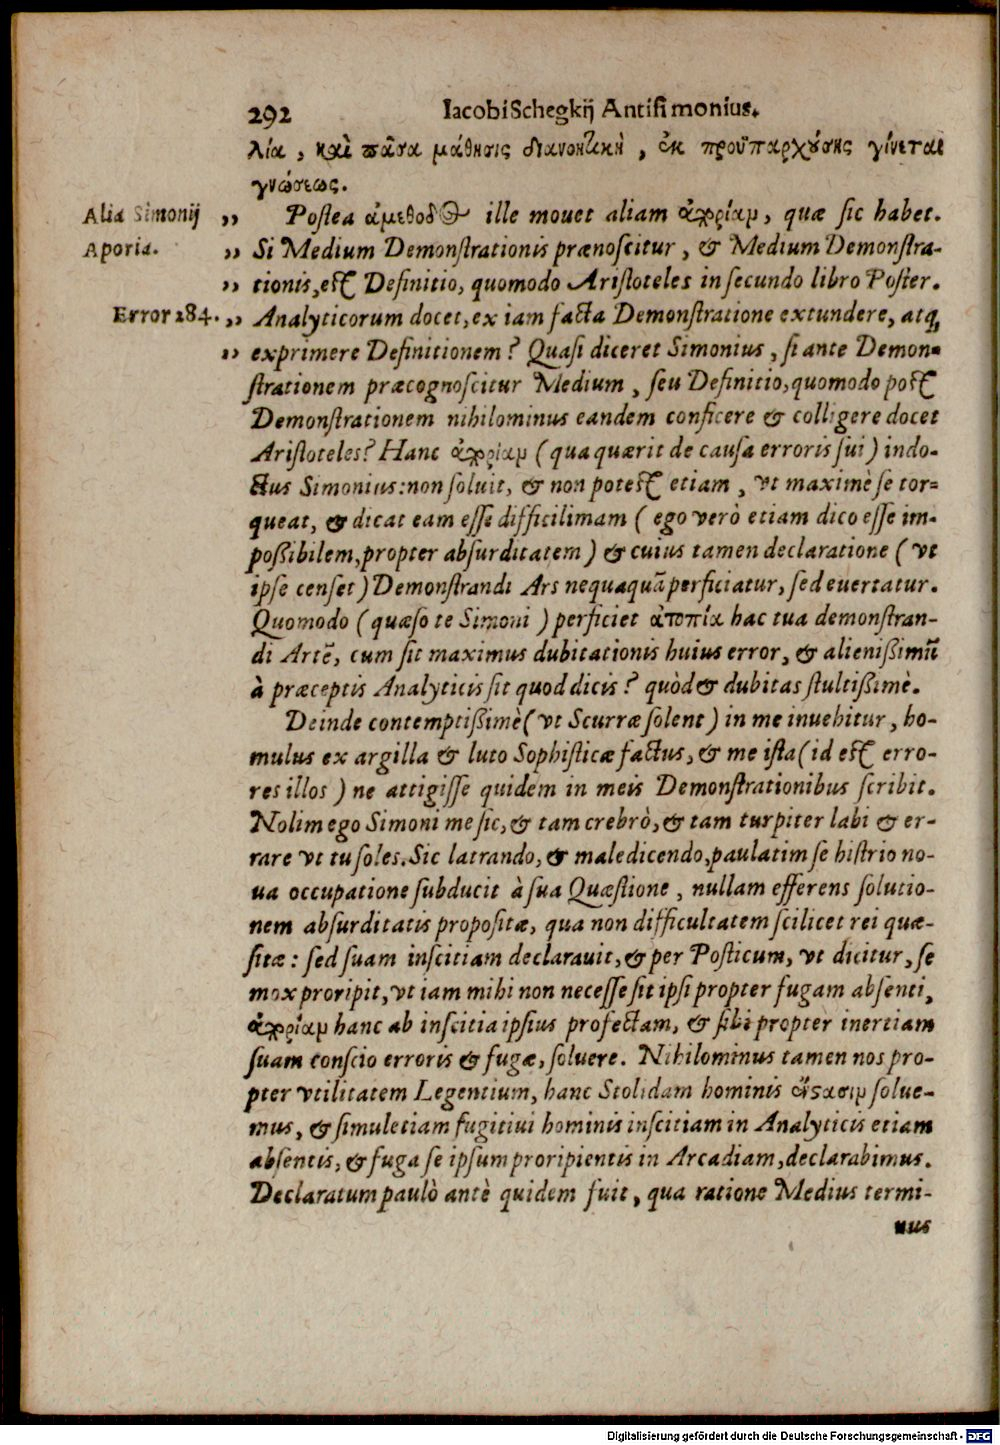 292 Iacobi Schegkij Antisimonius.
λία, καὶ πᾶσα μάθησις διανοητικὴ, ἐκ προϋπαρχούσης γίνεται
γνώσεως.
Alia Simonij ,, Postea ἀμέθοδος ille mouet aliam ἀπορίαμ, quæ sic habet.
Aporia. ,, Si Medium Demonstrationis prænoscitur, & Medium Demonstra-
,, tionis, est Definitio, quomodo Aristoteles in secundo libro Poster.
Error 284. ,, Analyticorum docet, ex iam facta Demonstratione extundere, atq;
,, exprimere Definitionem? Quasi diceret Simonius, si ante Demon-
strationem præcognoscitur Medium, seu Definitio, quomodo post
Demonstrationem nihilominus eandem conficere & colligere docet
Aristoteles? Hanc ἀπορίαμ (qua quærit de causa erroris sui) indo-
ctus Simonius: non soluit, & non potest etiam, vt maximè se tor-
queat, & dicat eam esse difficilimam (ego verò etiam dico esse im-
poßibilem, propter absurditatem) & cuius tamen declaratione (vt
ipse censet) Demonstrandi Ars nequaquā perficiatur, sed euertatur.
Quomodo (quæso te Simoni) perficiet ἀτοπία hac tua demonstran-
di Artē, cum sit maximus dubitationis huius error, & alienißimū
à præceptis Analyticis sit quod dicis? quòd & dubitas stultißimè.
Deinde contemptißimè (vt Scurræ solent) in me inuehitur, ho-
mulus ex argilla & luto Sophisticæ factus, & me ista (id est erro-
res illos) ne attigisse quidem in meis Demonstrationibus scribit.
Nolim ego Simoni me sic, & tam crebrò, & tam turpiter labi & er-
rare vt tu soles. Sic latrando, & maledicendo, paulatim se histrio no-
ua occupatione subducit à sua Quæstione, nullam efferens solutio-
nem absurditatis propositæ, qua non difficultatem scilicet rei quæ-
sitæ: sed suam inscitiam declarauit, & per Posticum, vt dicitur, se
mox proripit, vt iam mihi non necesse sit ipsi propter fugam absenti,
ἀπορίαμ hanc ab inscitia ipsius profectam, & sibi propter inertiam
suam conscio erroris & fugæ, soluere. Nihilominus tamen nos pro-
pter vtilitatem Legentium, hanc Stolidam hominis ἔνστασιμ solue-
mus, & simul etiam fugitiui hominis inscitiam in Analyticis etiam
absentis, & fuga se ipsum proripientis in Arcadiam, declarabimus.
Declaratum paulò antè quidem fuit, qua ratione Medius termi-
nus
Digitalisierung gefördert durch die Deutsche Forschungsgemeinschaft - DFG